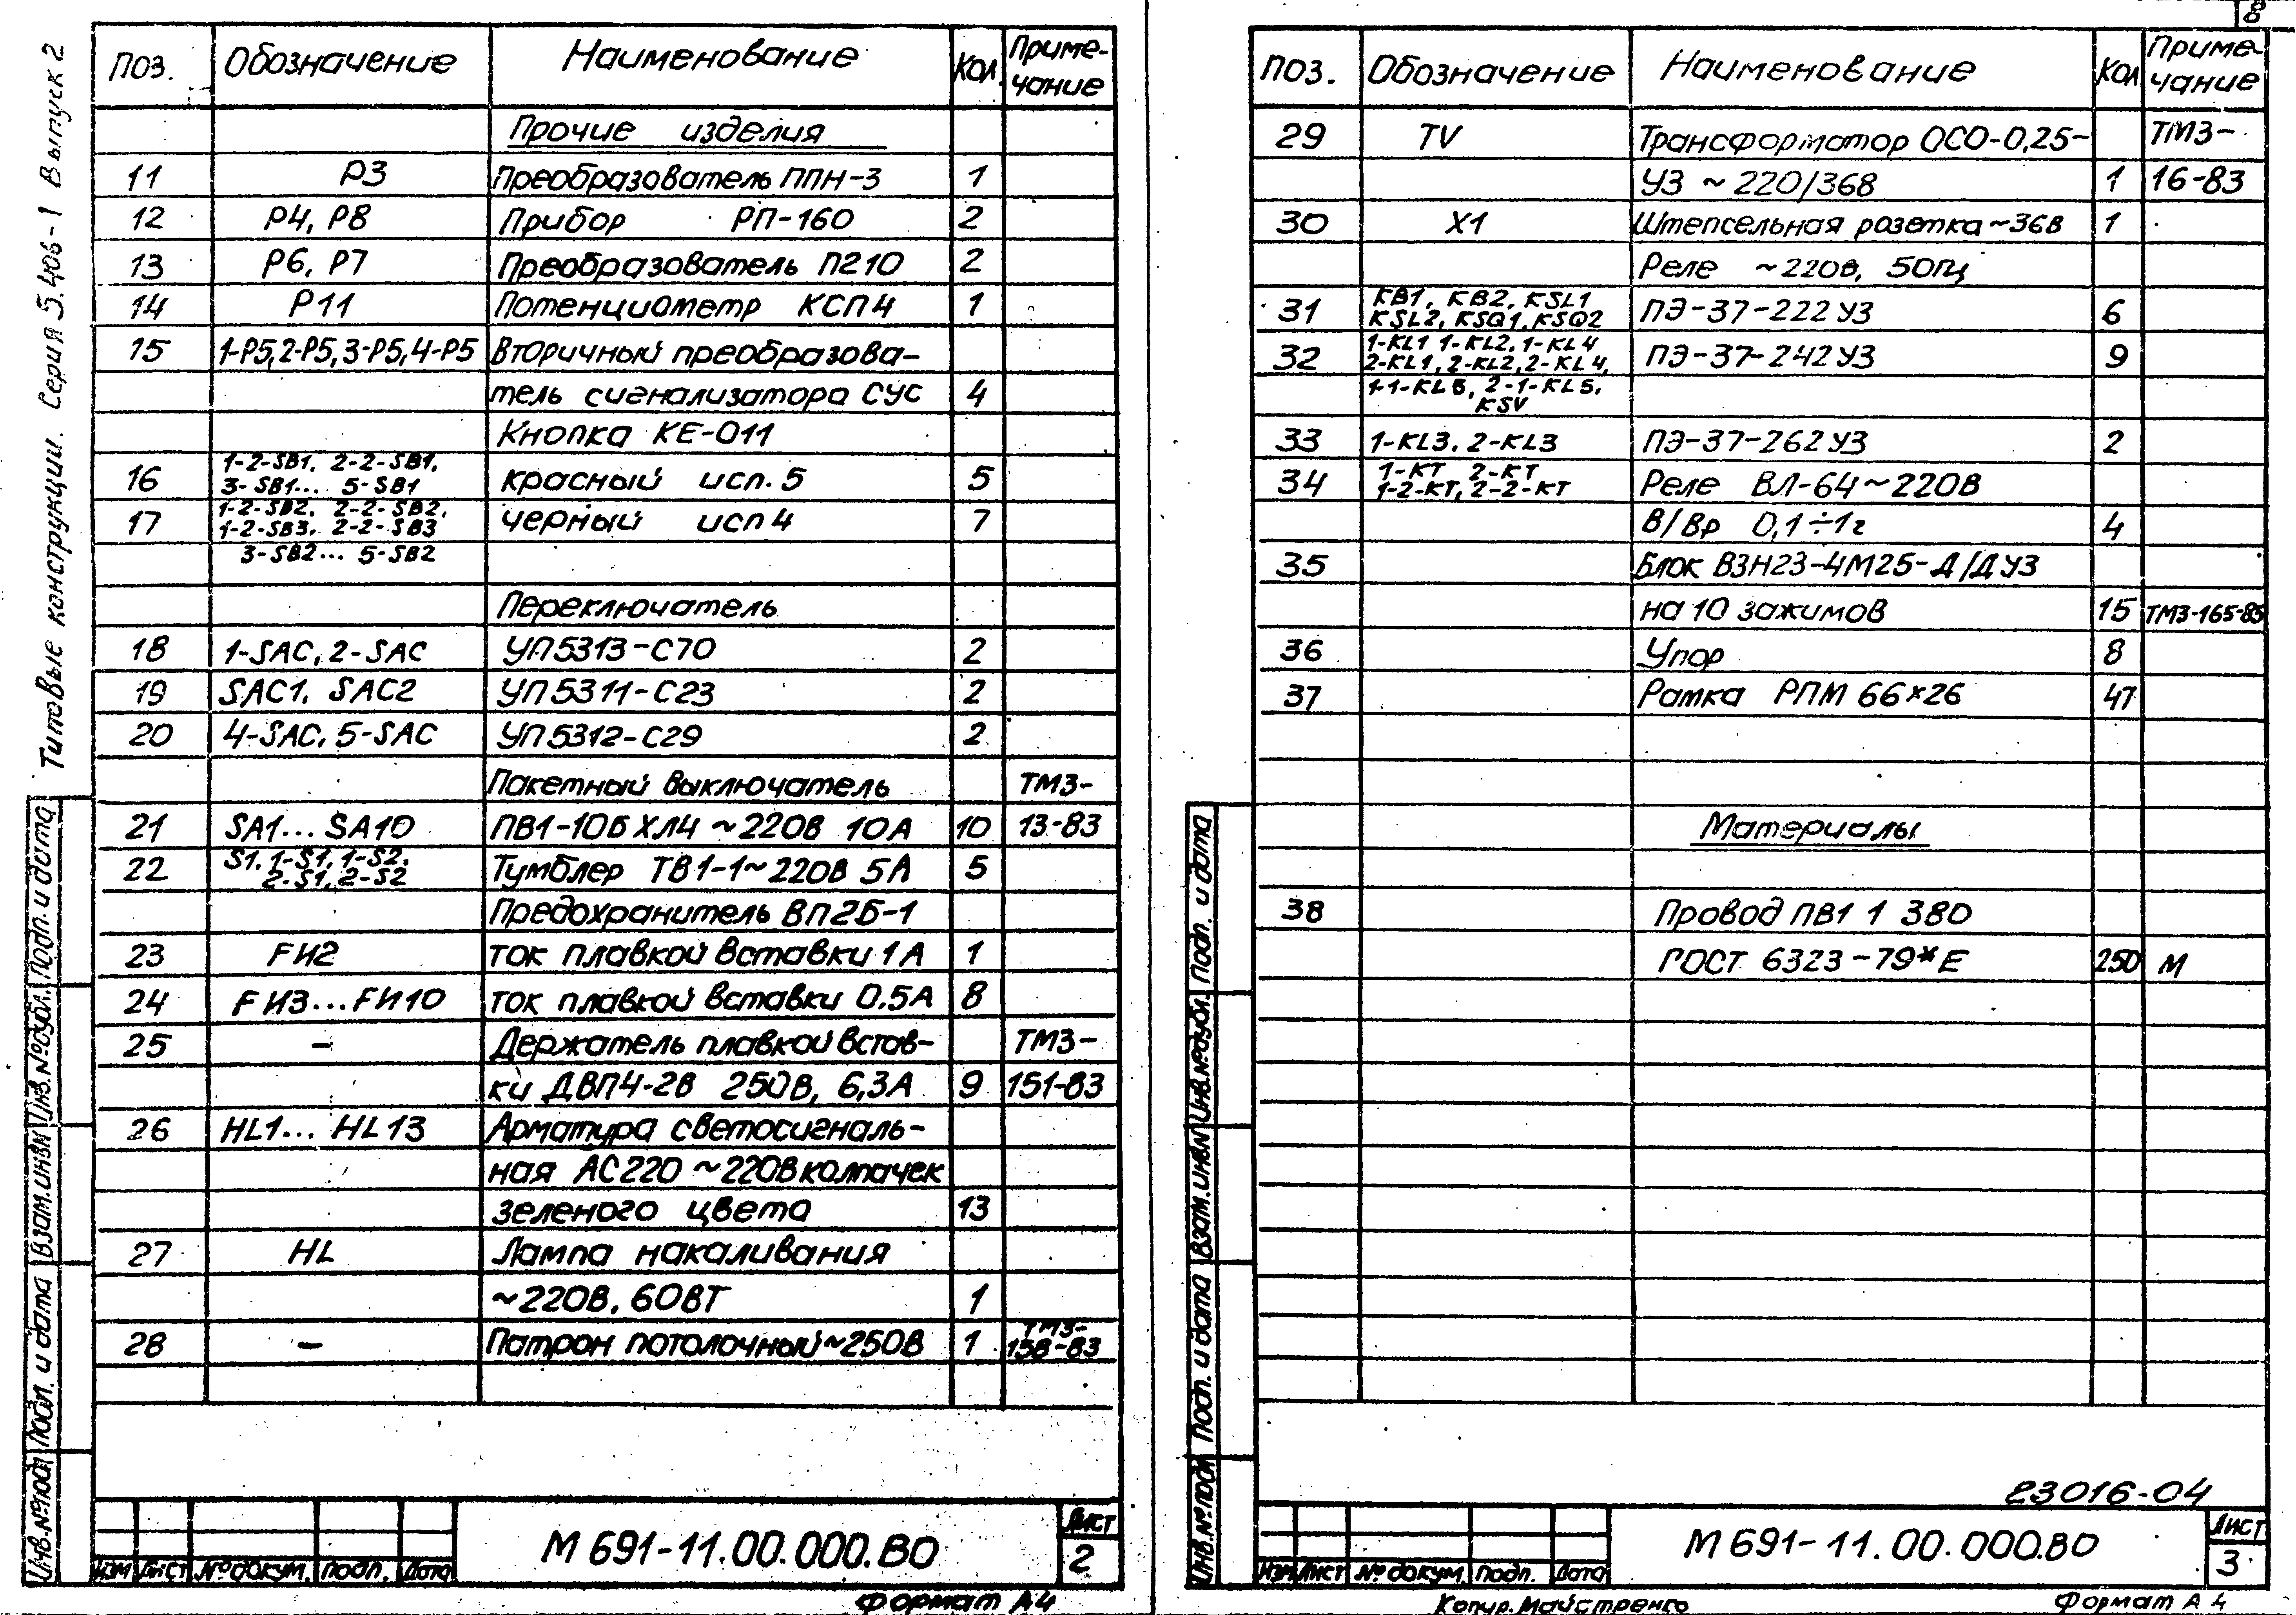 Типовые конструкции. Серия 5.408-1 Выпуск 2
Поз. Обозначение Наименование Кол. Приме-
чание
Прочие изделия
11 Р3 Преобразователь ППН-3 1
12 Р4, Р8 Прибор РП-160 2
13 Р6, Р7 Преобразователь П210 2
14 Р11 Потенциометр КСП4 1
15 1-Р5, 2-Р5, 3-Р5, 4-Р5 Вторичный преобразова-
тель сигнализатора СУС 4
Кнопка КЕ-011
16 1-2-SB1, 2-2-SB1, красный исп. 5 5
3-SB1... 5-SB1
17 1-2-SB2, 2-2-SB2, черный исп 4 7
1-2-SB3, 2-2-SB3
3-SB2... 5-SB2
Переключатель
18 1-SAC, 2-SAC УП5313-С70 2
19 SAC1, SAC2 УП5311-С23 2
20 4-SAC, 5-SAC УП5312-С29 2
Пакетный выключатель ТМ3-
21 SA1... SA10 ПВ1-10Б ХЛ4 ~220В 10А 10 13-83
22 S1, 1-S1, 1-S2, Тумблер ТВ1-1~220В 5А 5
2-S1, 2-S2
Предохранитель ВП2Б-1
23 FИ2 ток плавкой вставки 1А 1
24 FИ3...FИ10 ток плавкой вставки 0.5А 8
25 – Держатель плавкой встав- ТМ3-
ки ДВП4-2В 250В, 6,3А 9 151-83
26 HL1... HL13 Арматура светосигналь-
ная АС220 ~220В колпачек
зеленого цвета 13
27 HL Лампа накаливания
~220В, 60ВТ 1
28 – Патрон потолочный~250В 1 ТМ3-
158-83
Инв.№подл. Подп. и дата Взам.инв№ Инв.№дубл. Подп. и дата
Изм Лист №докум. Подп. Дата
М 691-11.00.000.ВО
Лист
2
Формат А4
8
Поз. Обозначение Наименование Кол Приме-
чание
29 TV Трансформатор ОСО-0,25- ТМ3-
У3 ~220/36В 1 16-83
30 Х1 Штепсельная розетка~36В 1
Реле ~220В, 50Гц
31 КВ1, КВ2, KSL1, ПЭ-37-222У3 6
KSL2, KSQ1, KSQ2
32 1-KL1 1-KL2, 1-KL4 ПЭ-37-242У3 9
2-KL1, 2-KL2, 2-KL4,
1-1-KL5, 2-1-KL5,
KSV
33 1-KL3, 2-KL3 ПЭ-37-262У3 2
34 1-КТ, 2-КТ Реле ВЛ-64~220В
1-2-КТ, 2-2-КТ
В/Вр 0,1÷1г 4
35 Блок ВЗН23-4М25-Д/ДУ3
на 10 зажимов 15 ТМ3-165-85
36 Упор 8
37 Рамка РПМ 66×26 47
Материалы
38 Провод ПВ1 1 380
ГОСТ 6323-79*Е 250 М
23016-04
Инв.№подл Подп. и дата Взам.инв№ Инв.№дубл. Подп. и дата
Изм Лист №докум. Подп. Дата
М 691-11.00.000.ВО
Лист
3
Копир. Майстренко
Формат А4